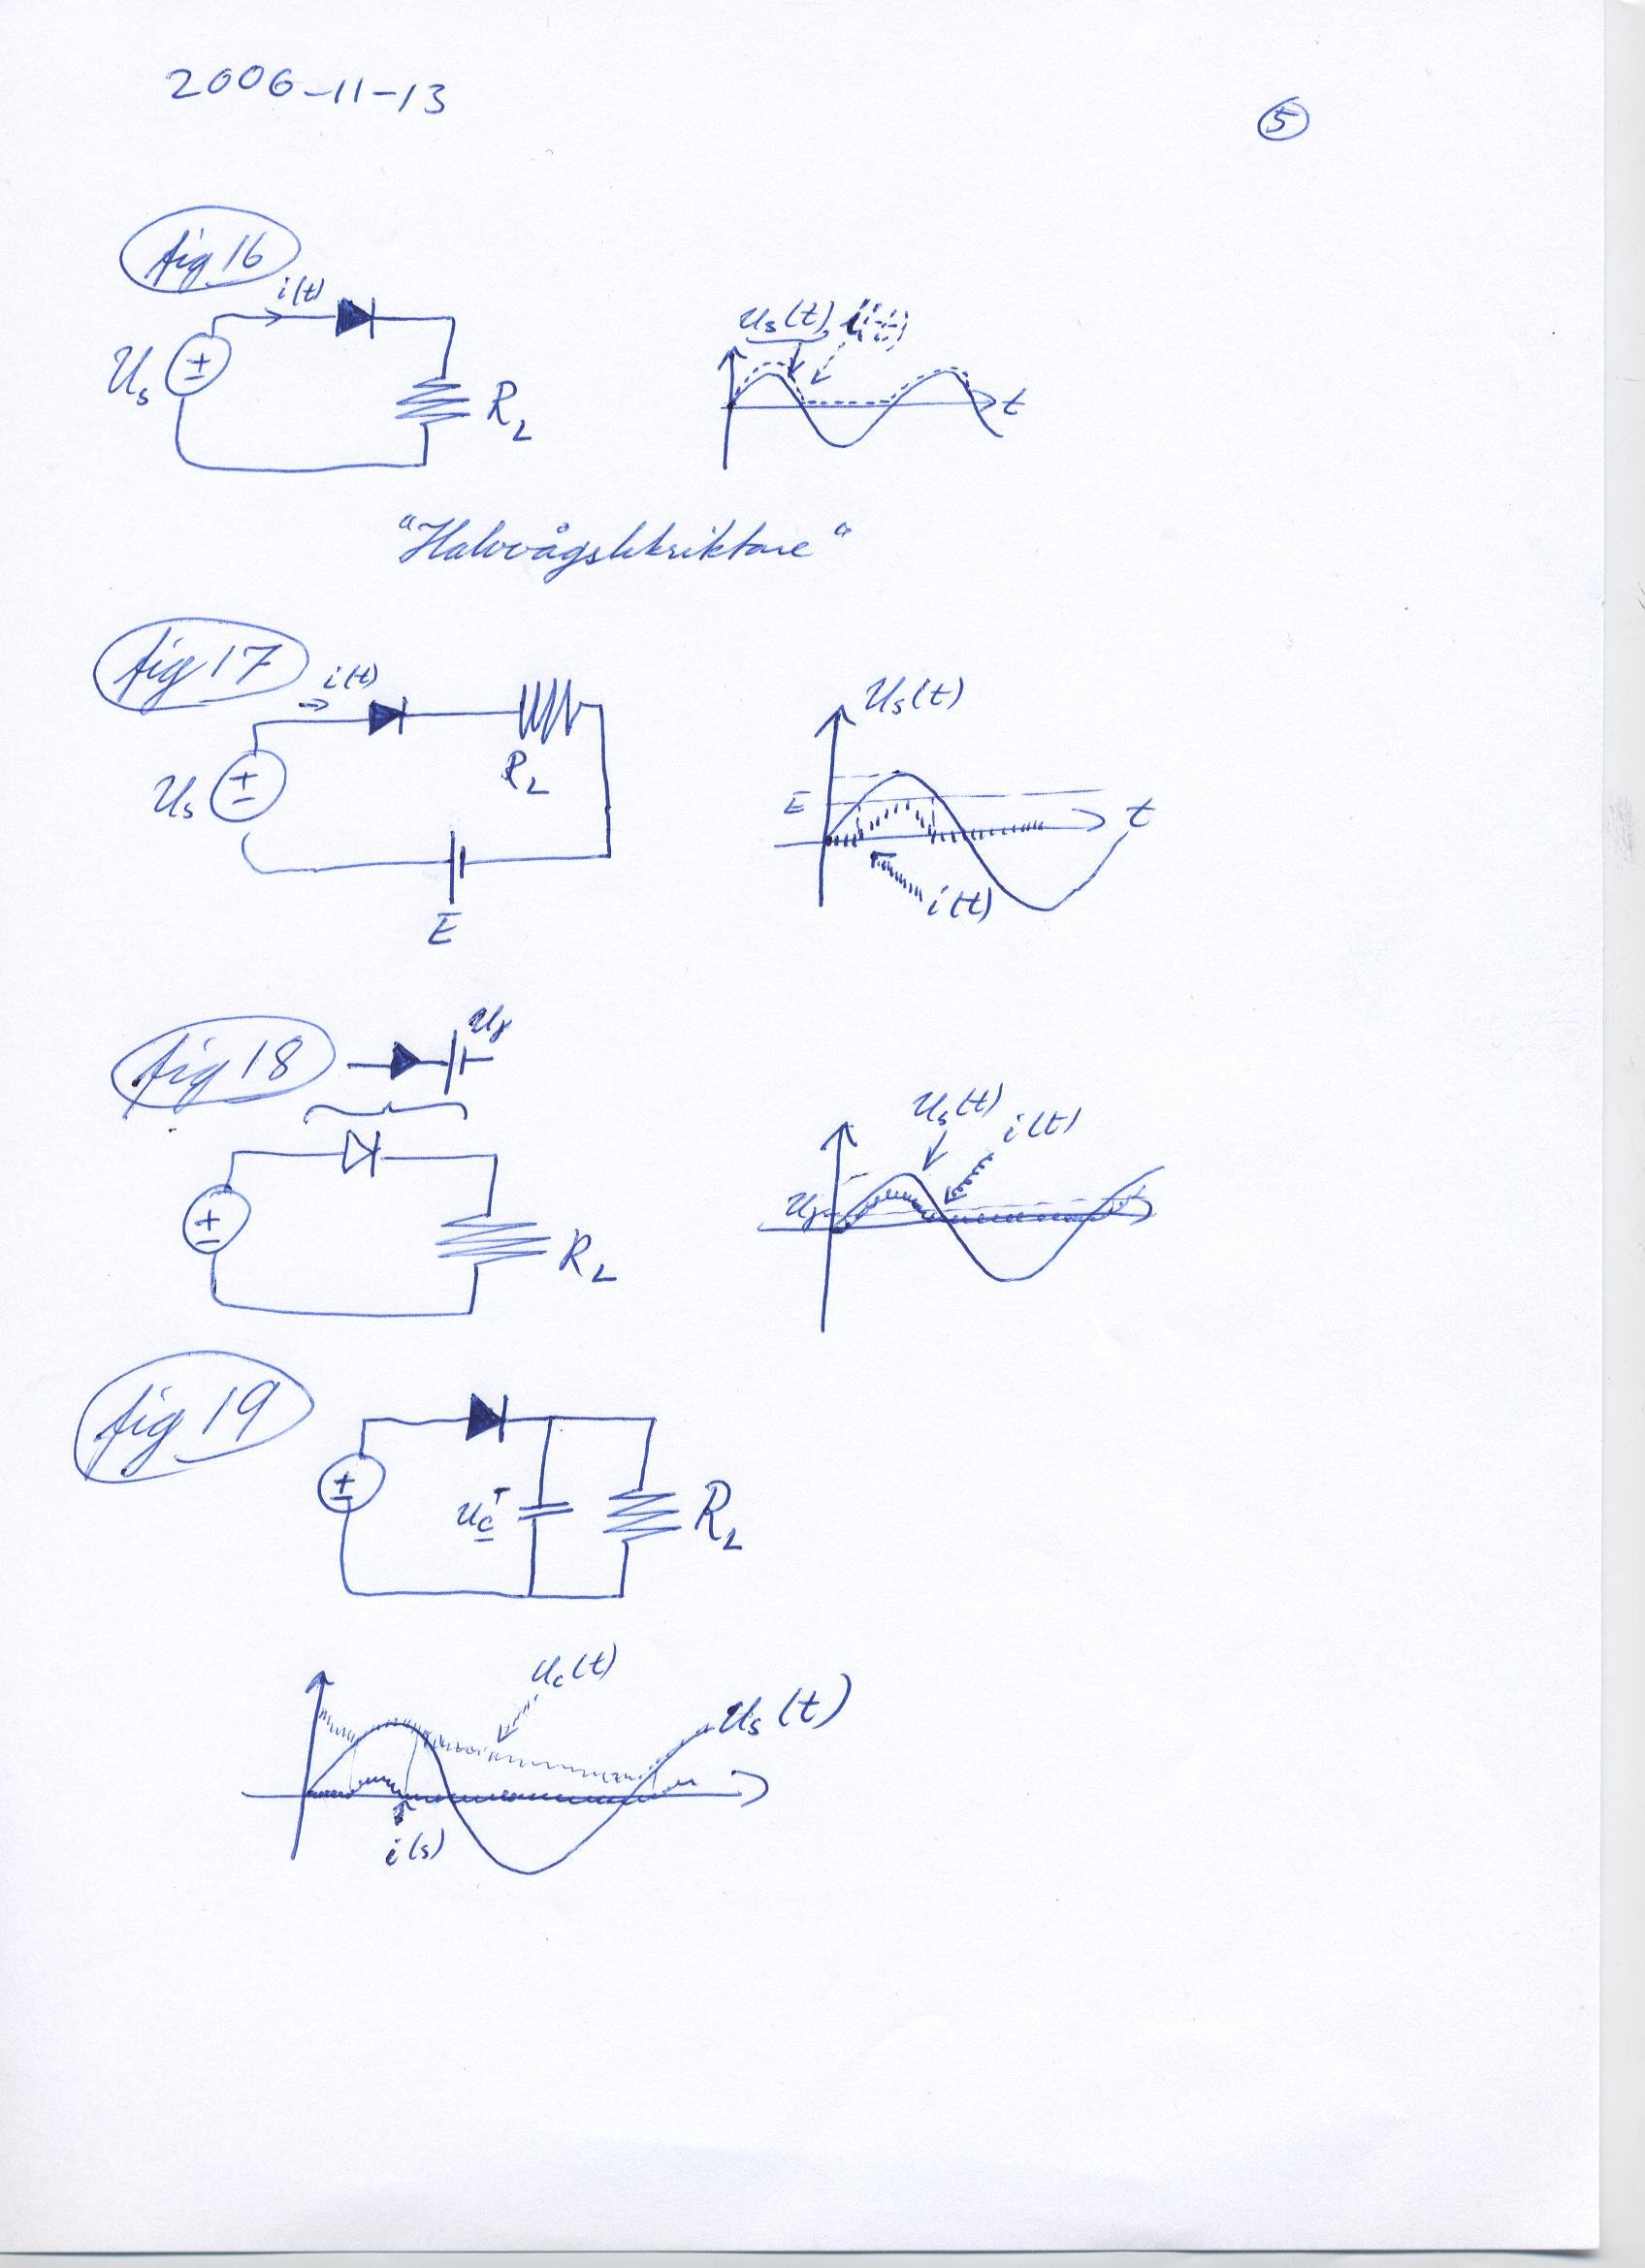 2006-11-13
5
fig 16
i(t)
Us
RL
Us(t), i(t)
t
"Halvvågslikriktare"
fig 17
i(t)
Us
RL
E
Us(t)
E
t
i(t)
fig 18
Uγ
RL
Us(t)
i(t)
Uγ
fig 19
uc
RL
uc(t)
us(t)
i(s)